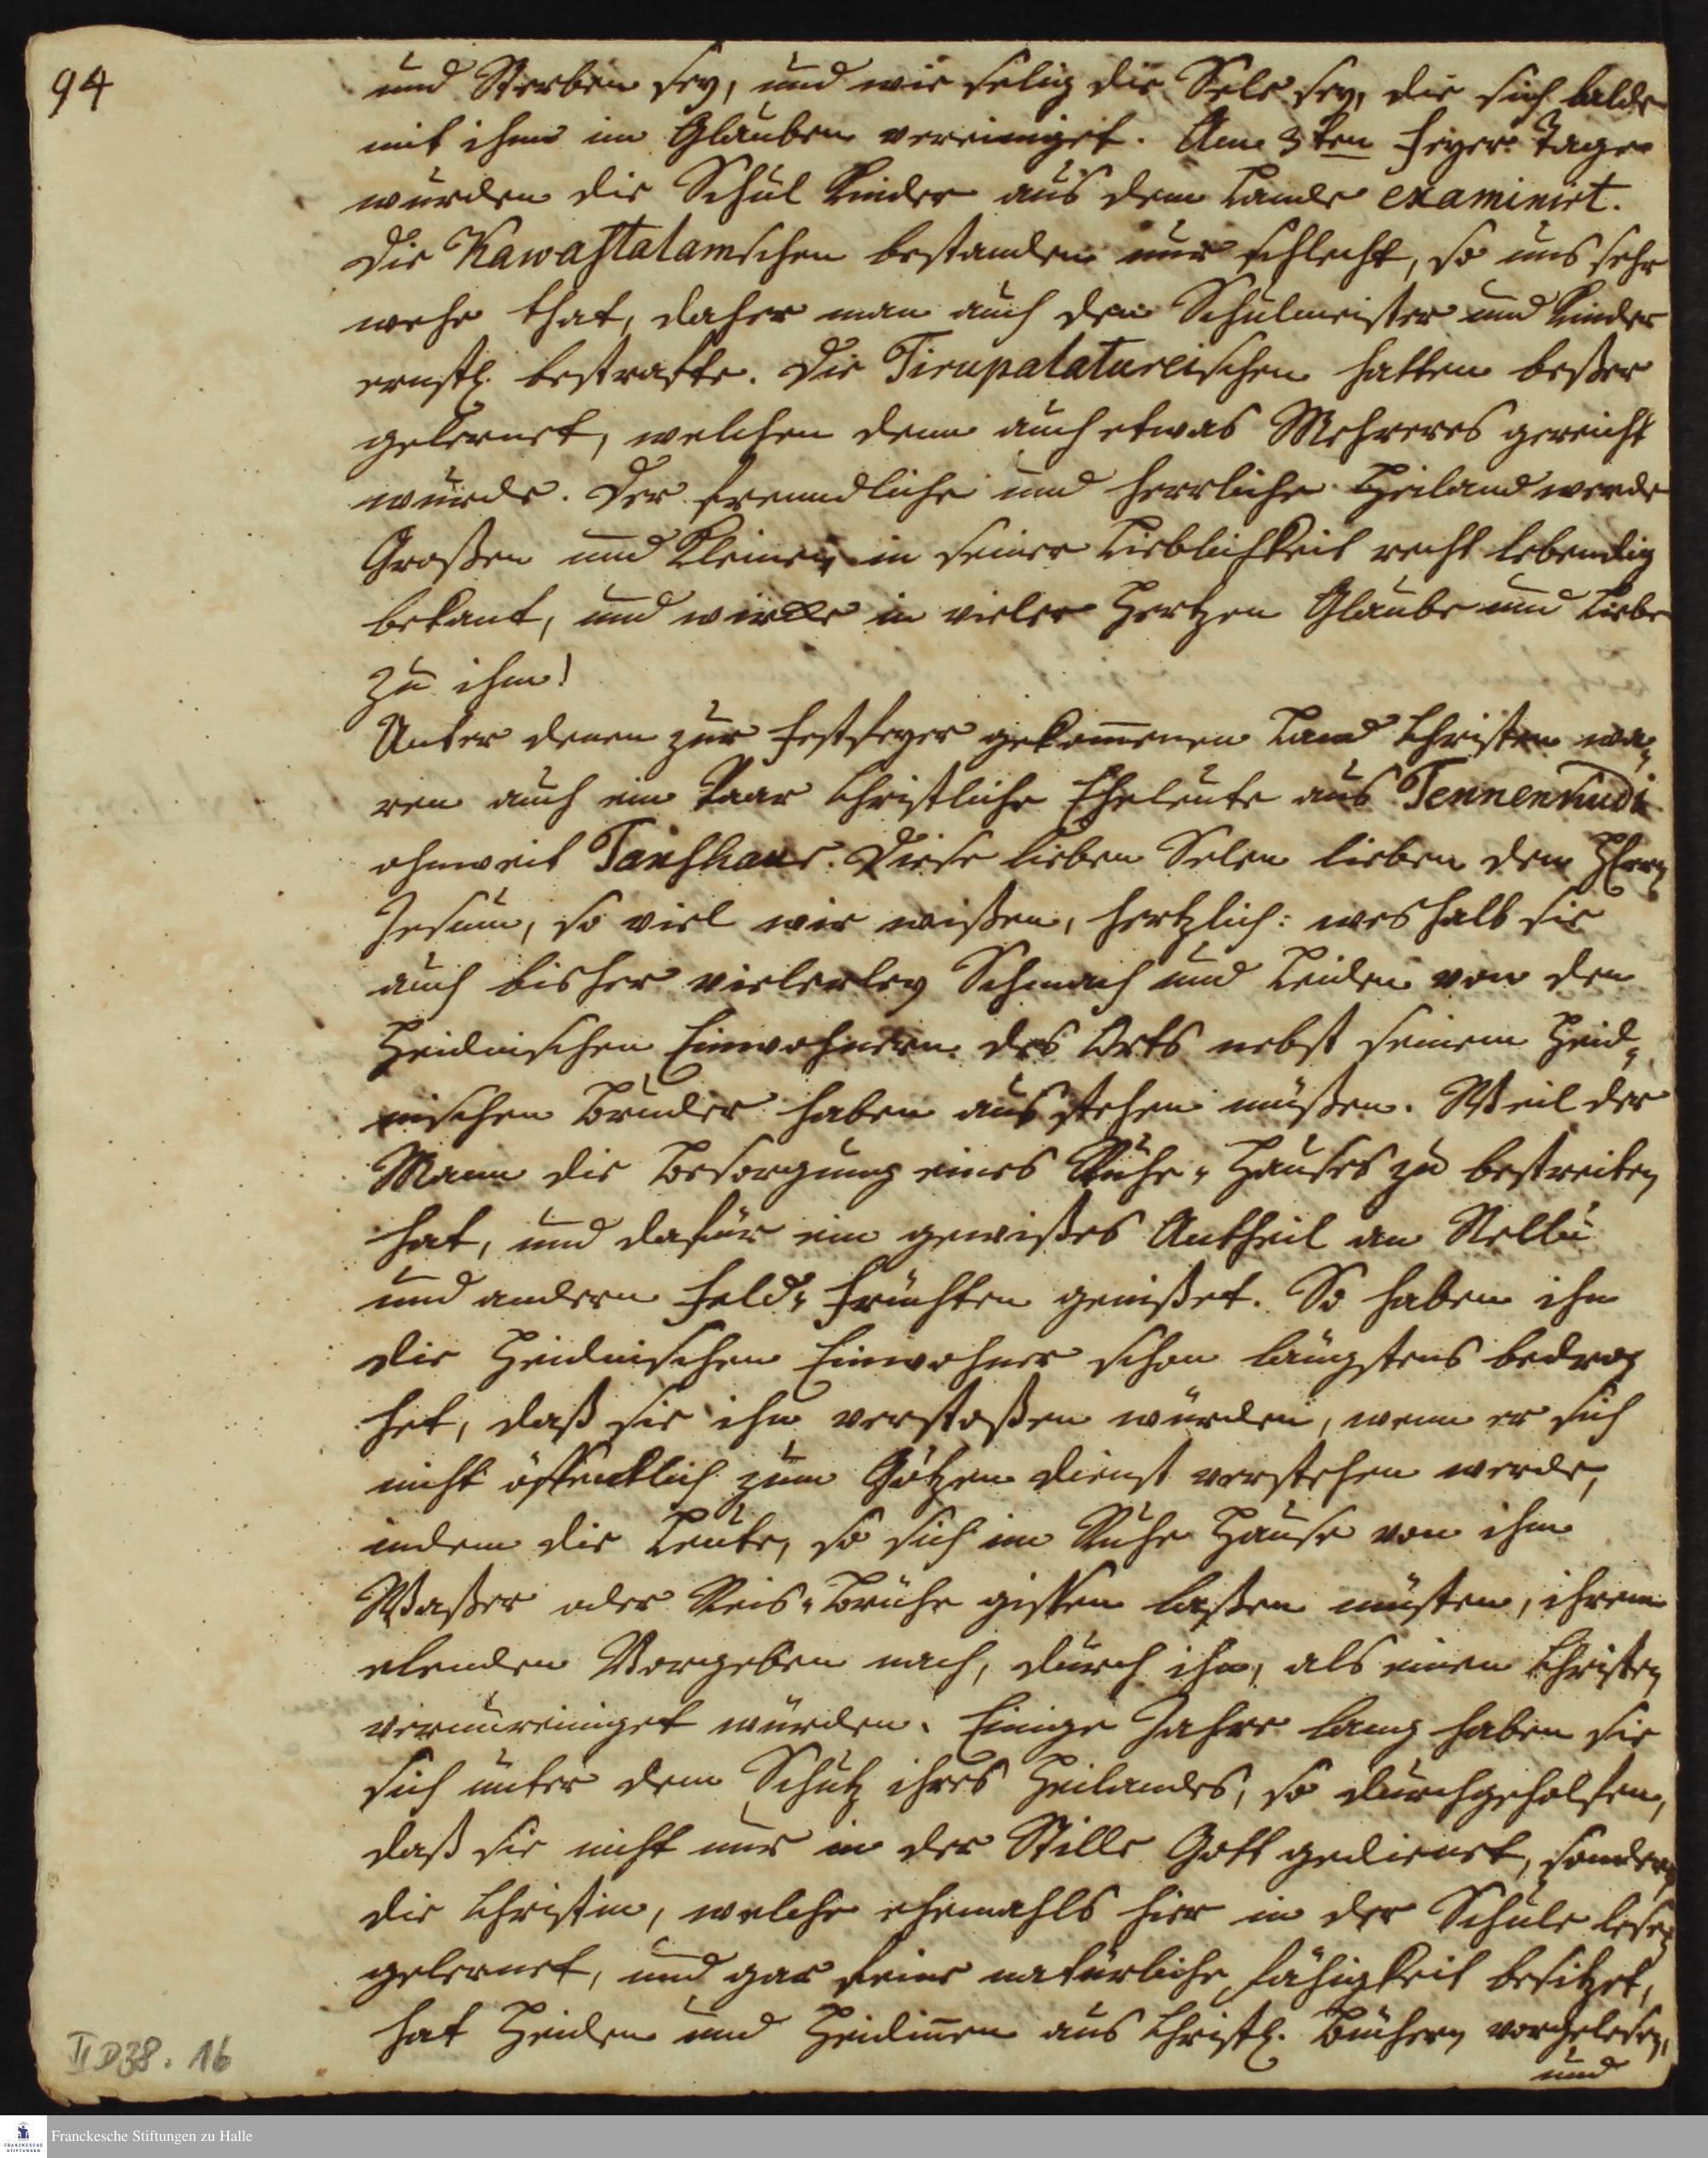 94
und Sterben sey, und wie selig die Sele sey, die sich balde
mit ihm im Glauben vereiniget. Am 3ten Feyer Tage
wurden die Schul Kinder aus dem Lande examinirt.
Die Kawastalamschen bestanden nur schlecht, so uns sehr
wehe that, daher man auch den Schulmeister und Kinder
ernstl. bestrafte. Die Tirupalatureischen hatten beßer
gelernet, welchen denn auch etwas Mehreres gereicht
wurde. Der freundliche und herrliche Heiland werde
Großen und Kleinen in seiner Lieblichkeit recht lebendig
bekant, und wircke in vieler Hertzen Glaube und Liebe
zu ihm!
Unter denen zur Festfeyer gekom̅enen Land Christen wa-
ren auch ein Paar Christliche Eheleute aus Tennenkudi
ohnweit Tanschaur. Diese lieben Selen lieben den HErrn
Jesum, so viel wir wißen, hertzlich: weshalb sie
auch bisher vielerley Schmach und Leiden von den
Heidnischen Einwohnern des Orts nebst seinem Heid-
nischen Bruder haben ausstehen müßen. Weil der
Mann die Besorgung eines Ruhe-Hauses zu bestreiten
hat, und dafür ein gewißes Antheil an Nellu
und andern Feld-Früchten genißet. So haben ihn
die Heidnischen Einwohner schon längstens bedro-
het, daß sie ihn verstoßen würden, wenn er sich
nicht öffentlich zum Götzen dienst verstehen werde,
indem die Leute, so sich im Ruhe Hause von ihm
Waßer oder Reis-Brühe gißen laßen müsten, ihrem
elenden Vorgeben nach, durch ihn, als einen Christen
verunreiniget würden. Einige Jahre lang haben sie
sich unter dem Schutz ihres Heilandes, so durchgeholfen,
daß sie nicht nur in der Stille Gott gedienet, sondern
die Christin, welche ehemahls hier in der Schule lesen
gelernet, und gar feine natürliche Fähigkeit besitzet,
hat Heiden und Heidin̅en aus Christl. Büchern vorgelesen,
und
II D38. 16
Franckesche Stiftungen zu Halle